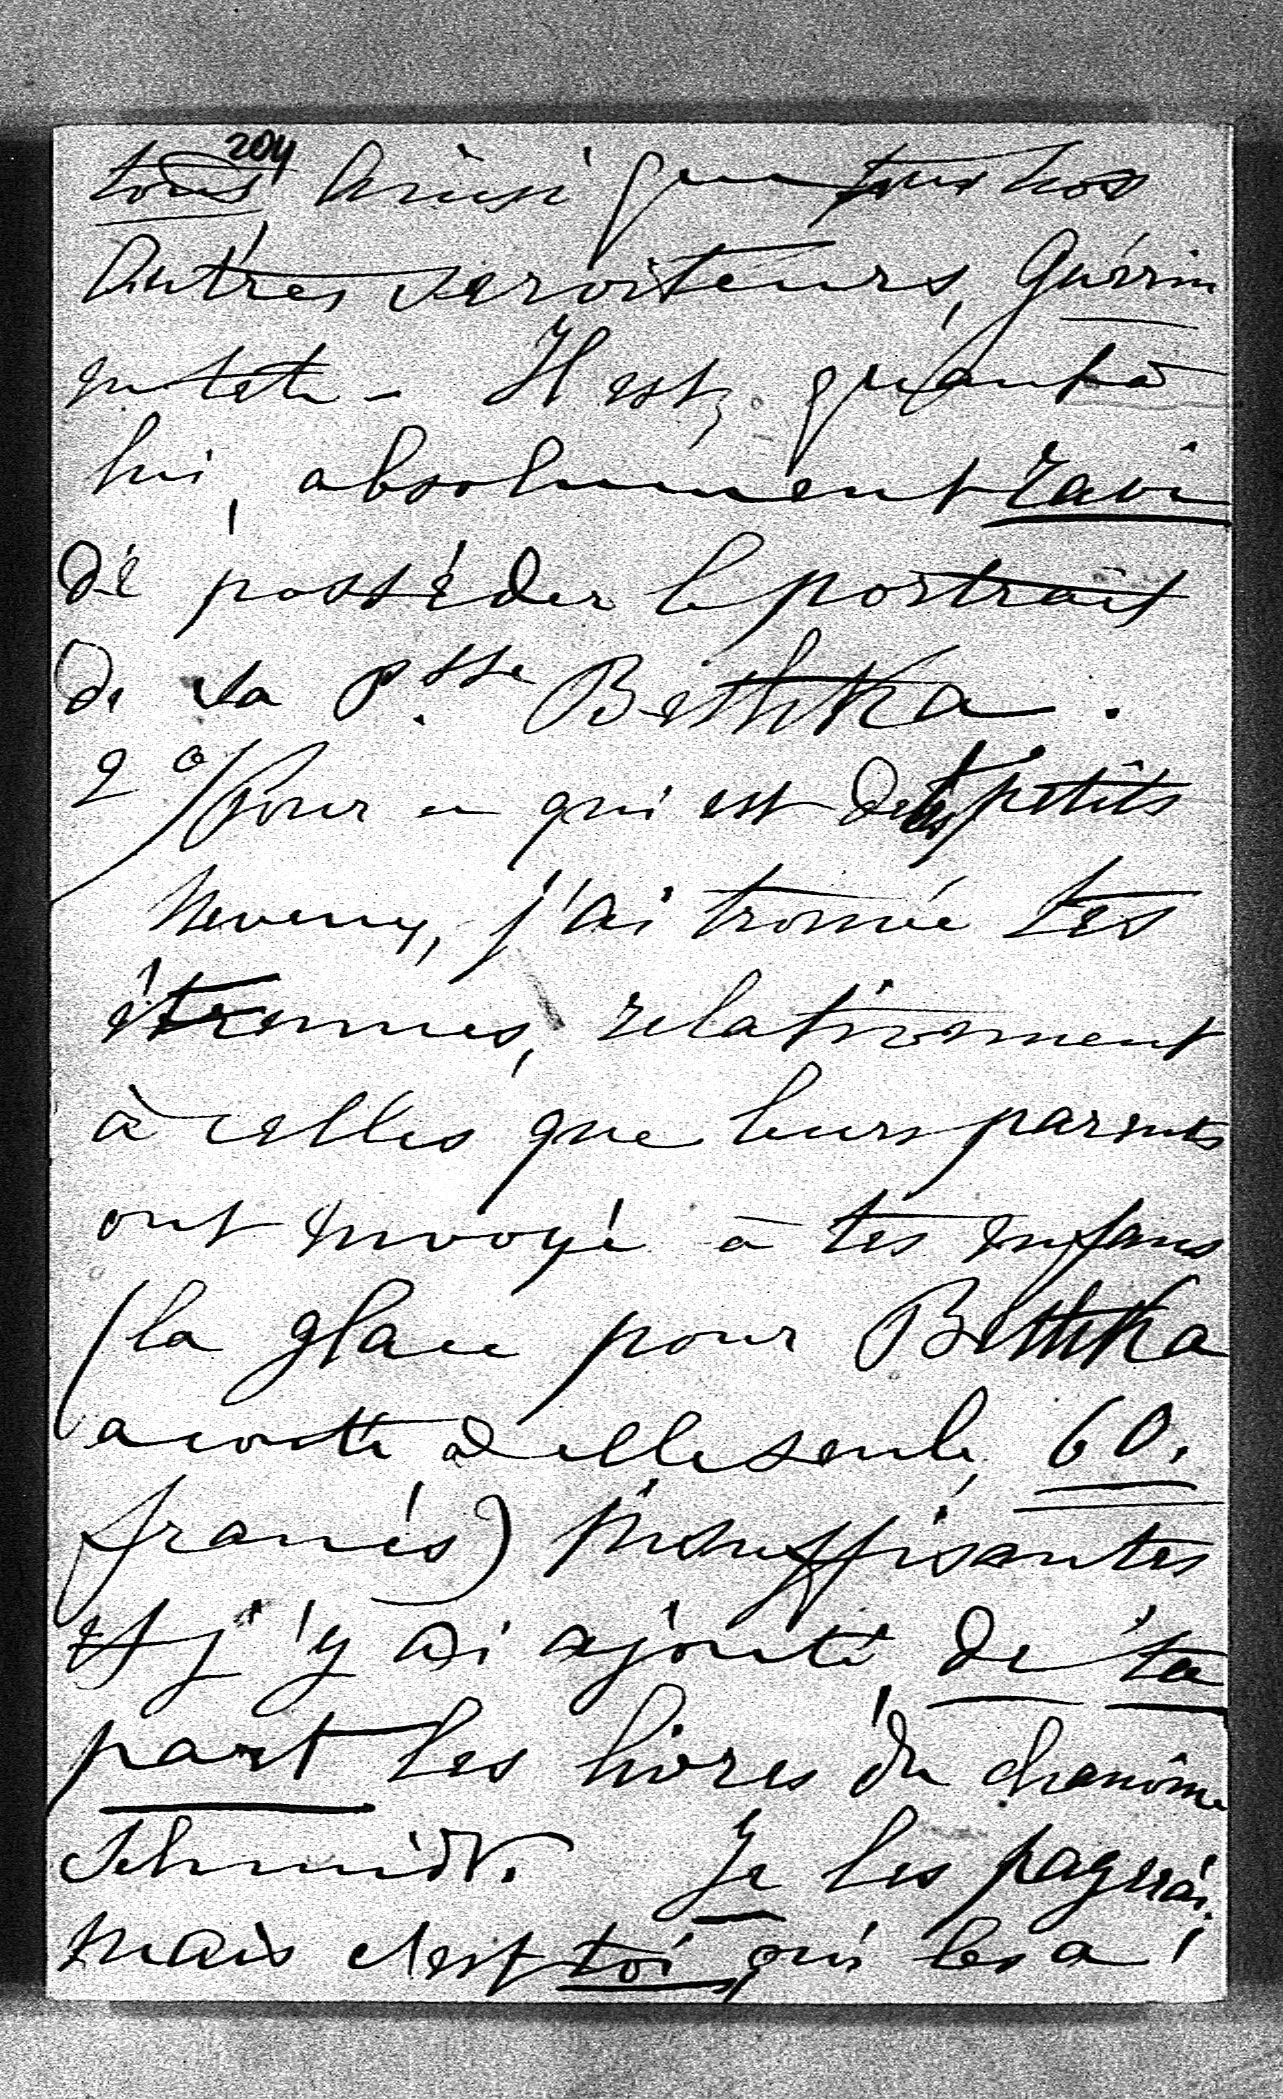 204
tous, ainsi que tous tes
autres serviteurs, Guérin
en tête. Il est, quant à
lui, absolument ravi
de posséder le portrait
de sa Psse Bethka.
2º/ Pour ce qui est de tes petits
neveux, j'ai trouvé tes
étrennes, relativement
à celles que leurs parents
ont envoyé à tes enfans
(la glace pour Bethka
a couté à elle seule, 60.
francs) insuffisantes
et j'y ai ajouté, de ta
part les livres du chanoine
Schmidt. Je les payerai,
mais c'est toi, qui les a